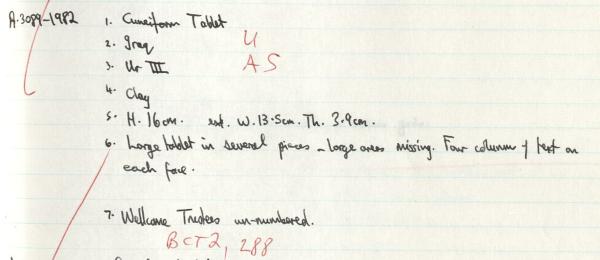 A.3089-1982 1. Cuneiform Tablet
2. Iraq U
3. Ur III AS
4. Clay
5. H. 16cm. est. W. 13.5cm. Th. 3.9cm.
6. Large tablet in several pieces - large areas missing. Four columns of text on
each face.
7. Wellcome Trustees un-numbered.
BCT2, 288